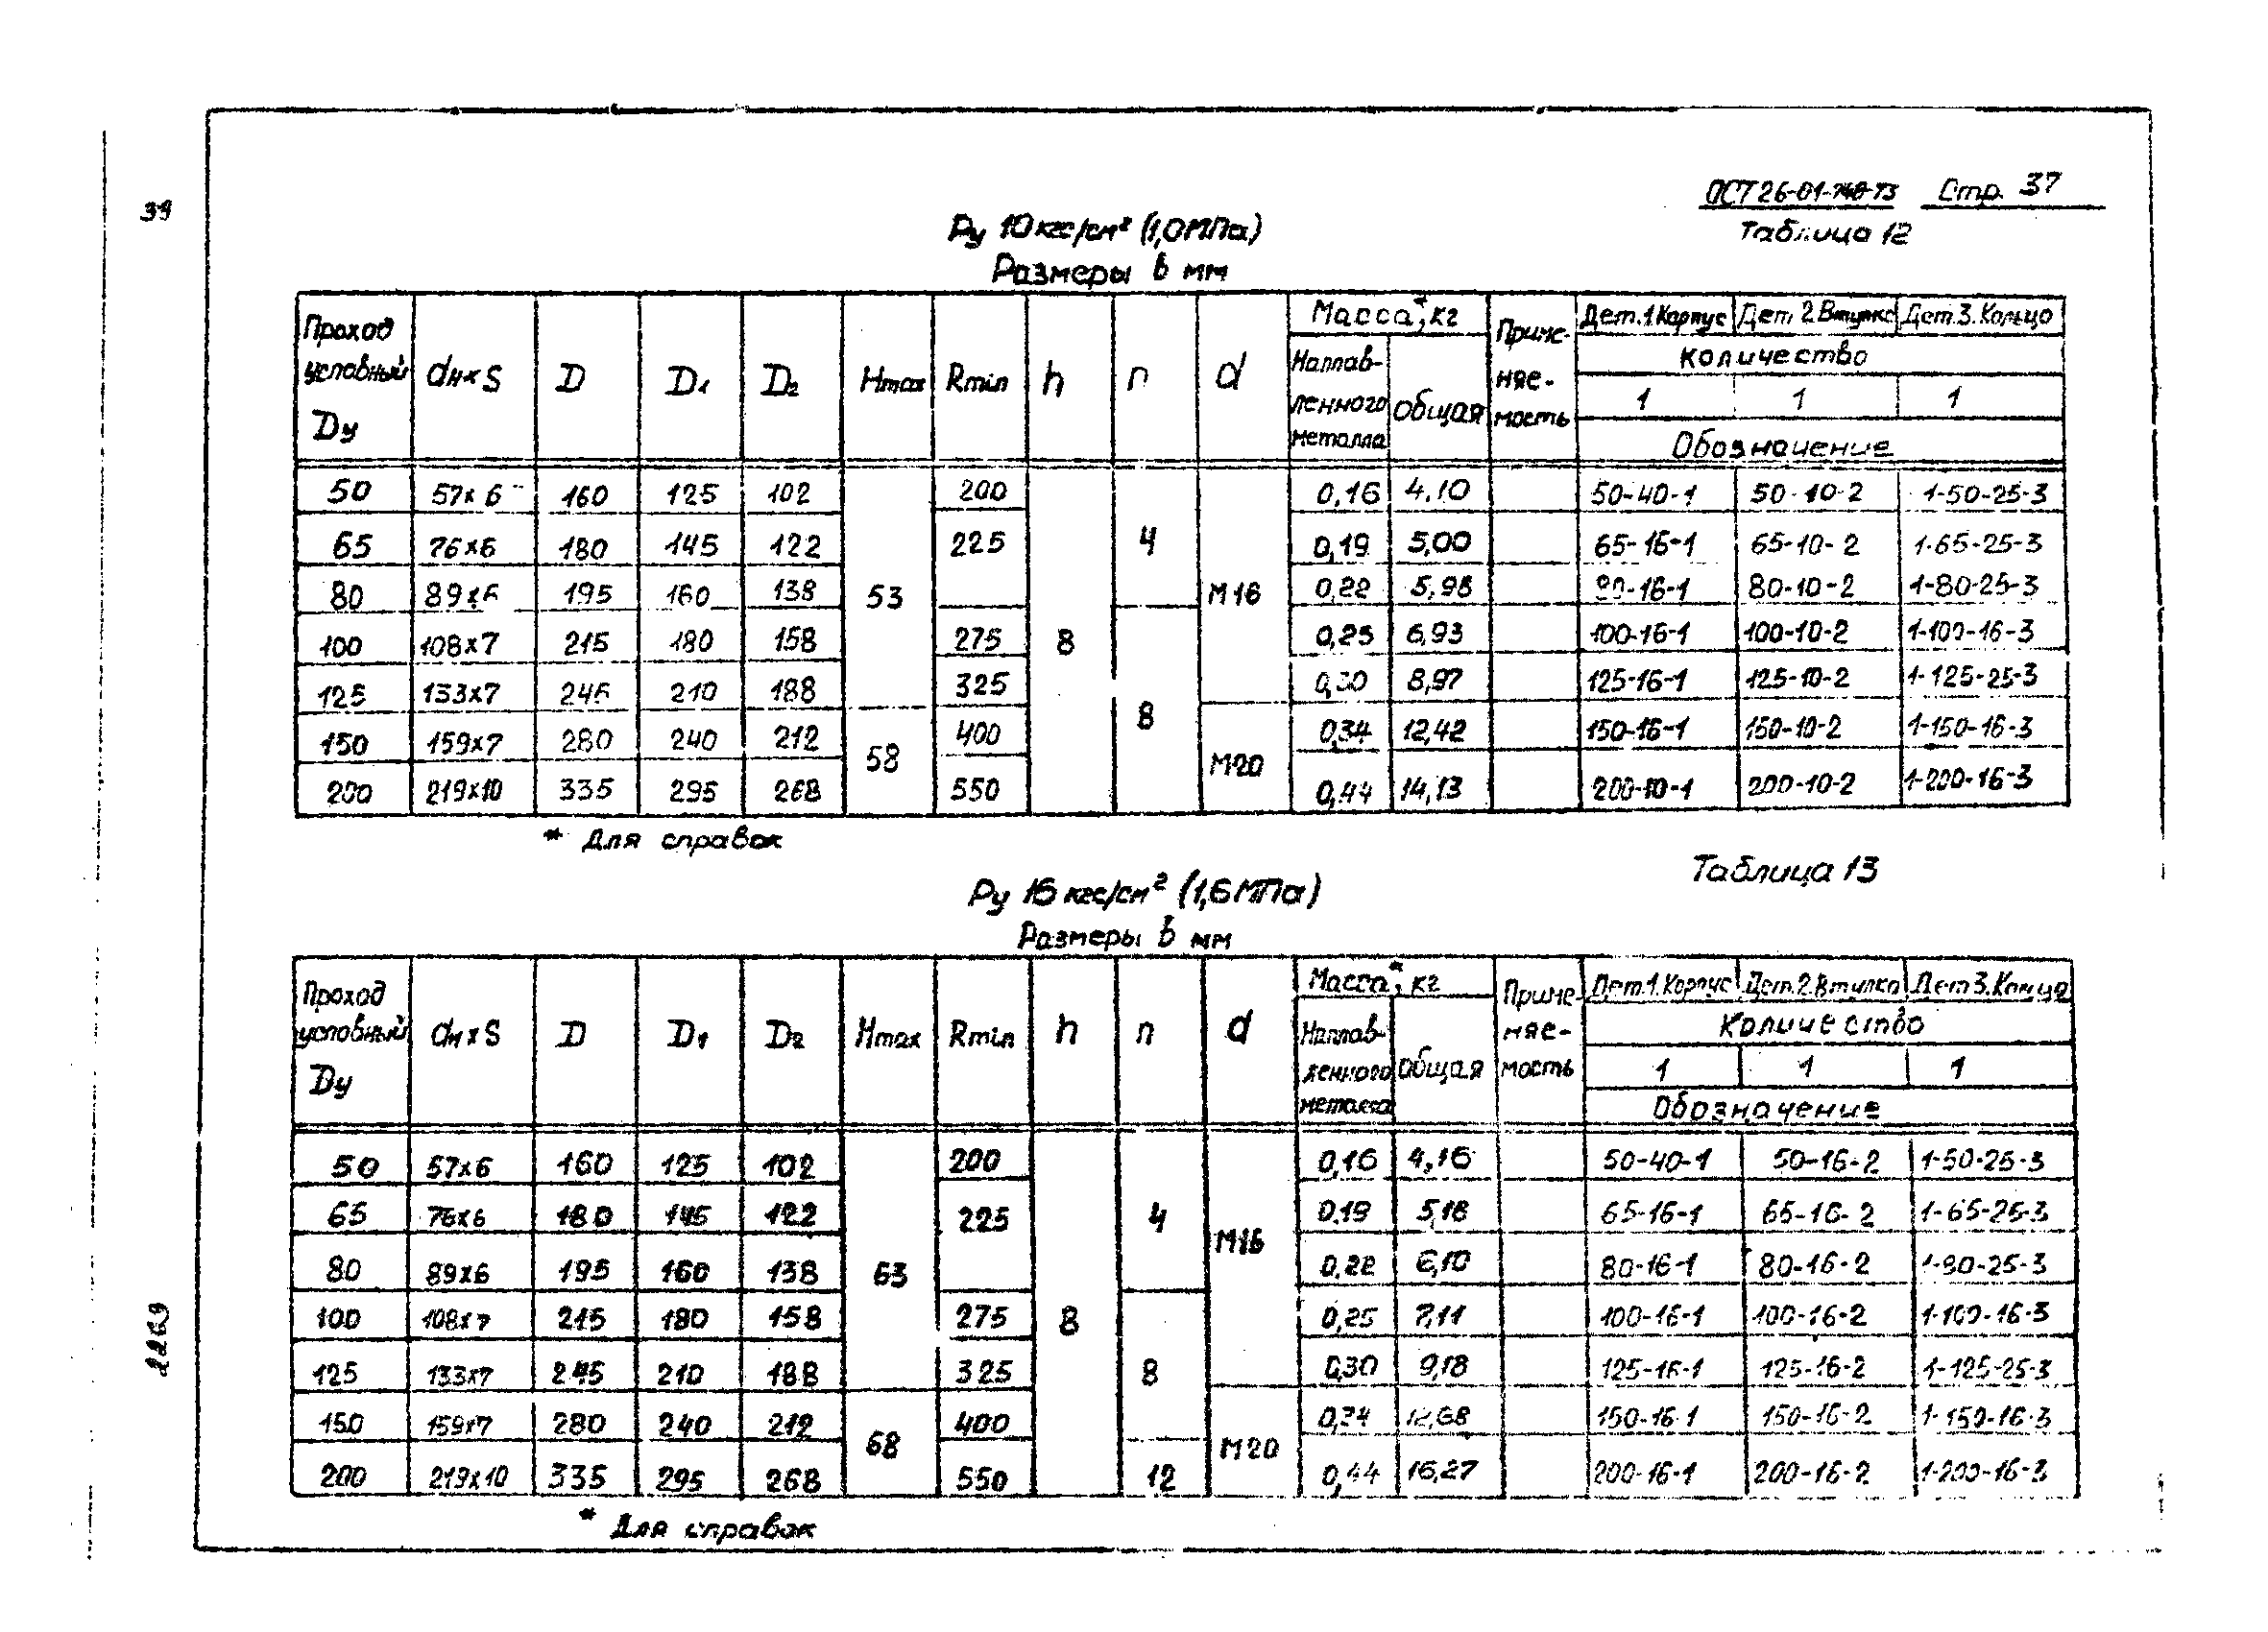 39
ОСТ 26-01-748-73 Стр. 37
Таблица 12
Ру 10 кгс/см² (1,0 МПа)
Размеры в мм
Проход условный Dу | dн×S | D | D1 | D2 | Hmax | Rmin | h | n | d | Масса*, кг | Приме-няе-мость | Дет.1.Корпус | Дет 2.Втулка | Дет.3.Кольцо
Наплав-ленного металла | Общая | Количество
1 | 1 | 1
Обозначение
50 | 57×6 | 160 | 125 | 102 | 53 | 200 | 8 | 4 | М16 | 0,16 | 4,10 | 50-40-1 | 50-10-2 | 1-50-25-3
65 | 76×6 | 180 | 145 | 122 | 225 | 0,19 | 5,00 | 65-16-1 | 65-10-2 | 1-65-25-3
80 | 89×6 | 195 | 160 | 138 | 0,22 | 5,98 | 80-16-1 | 80-10-2 | 1-80-25-3
100 | 108×7 | 215 | 180 | 158 | 275 | 8 | 0,25 | 6,93 | 100-16-1 | 100-10-2 | 1-100-16-3
125 | 133×7 | 245 | 210 | 188 | 325 | 0,30 | 8,97 | 125-16-1 | 125-10-2 | 1-125-25-3
150 | 159×7 | 280 | 240 | 212 | 58 | 400 | М20 | 0,34 | 12,42 | 150-16-1 | 150-10-2 | 1-150-16-3
200 | 219×10 | 335 | 295 | 268 | 550 | 0,44 | 14,13 | 200-10-1 | 200-10-2 | 1-200-16-3
* Для справок
Таблица 13
Ру 16 кгс/см² (1,6 МПа)
Размеры в мм
Проход условный Dу | dн×S | D | D1 | D2 | Hmax | Rmin | h | n | d | Масса*, кг | Приме-няе-мость | Дет.1.Корпус | Дет.2.Втулка | Дет.3.Кольцо
Наплав-ленного металла | Общая | Количество
1 | 1 | 1
Обозначение
50 | 57×6 | 160 | 125 | 102 | 63 | 200 | 8 | 4 | М16 | 0,16 | 4,16 | 50-40-1 | 50-16-2 | 1-50-25-3
65 | 76×6 | 180 | 145 | 122 | 225 | 0,19 | 5,18 | 65-16-1 | 65-16-2 | 1-65-25-3
80 | 89×6 | 195 | 160 | 138 | 0,22 | 6,10 | 80-16-1 | 80-16-2 | 1-80-25-3
100 | 108×7 | 215 | 180 | 158 | 275 | 8 | 0,25 | 7,11 | 100-16-1 | 100-16-2 | 1-100-16-3
125 | 133×7 | 245 | 210 | 188 | 325 | 0,30 | 9,18 | 125-16-1 | 125-16-2 | 1-125-25-3
150 | 159×7 | 280 | 240 | 212 | 68 | 400 | М20 | 0,34 | 12,68 | 150-16-1 | 150-16-2 | 1-150-16-3
200 | 219×10 | 335 | 295 | 268 | 550 | 12 | 0,44 | 16,27 | 200-16-1 | 200-16-2 | 1-200-16-3
* Для справок
2269